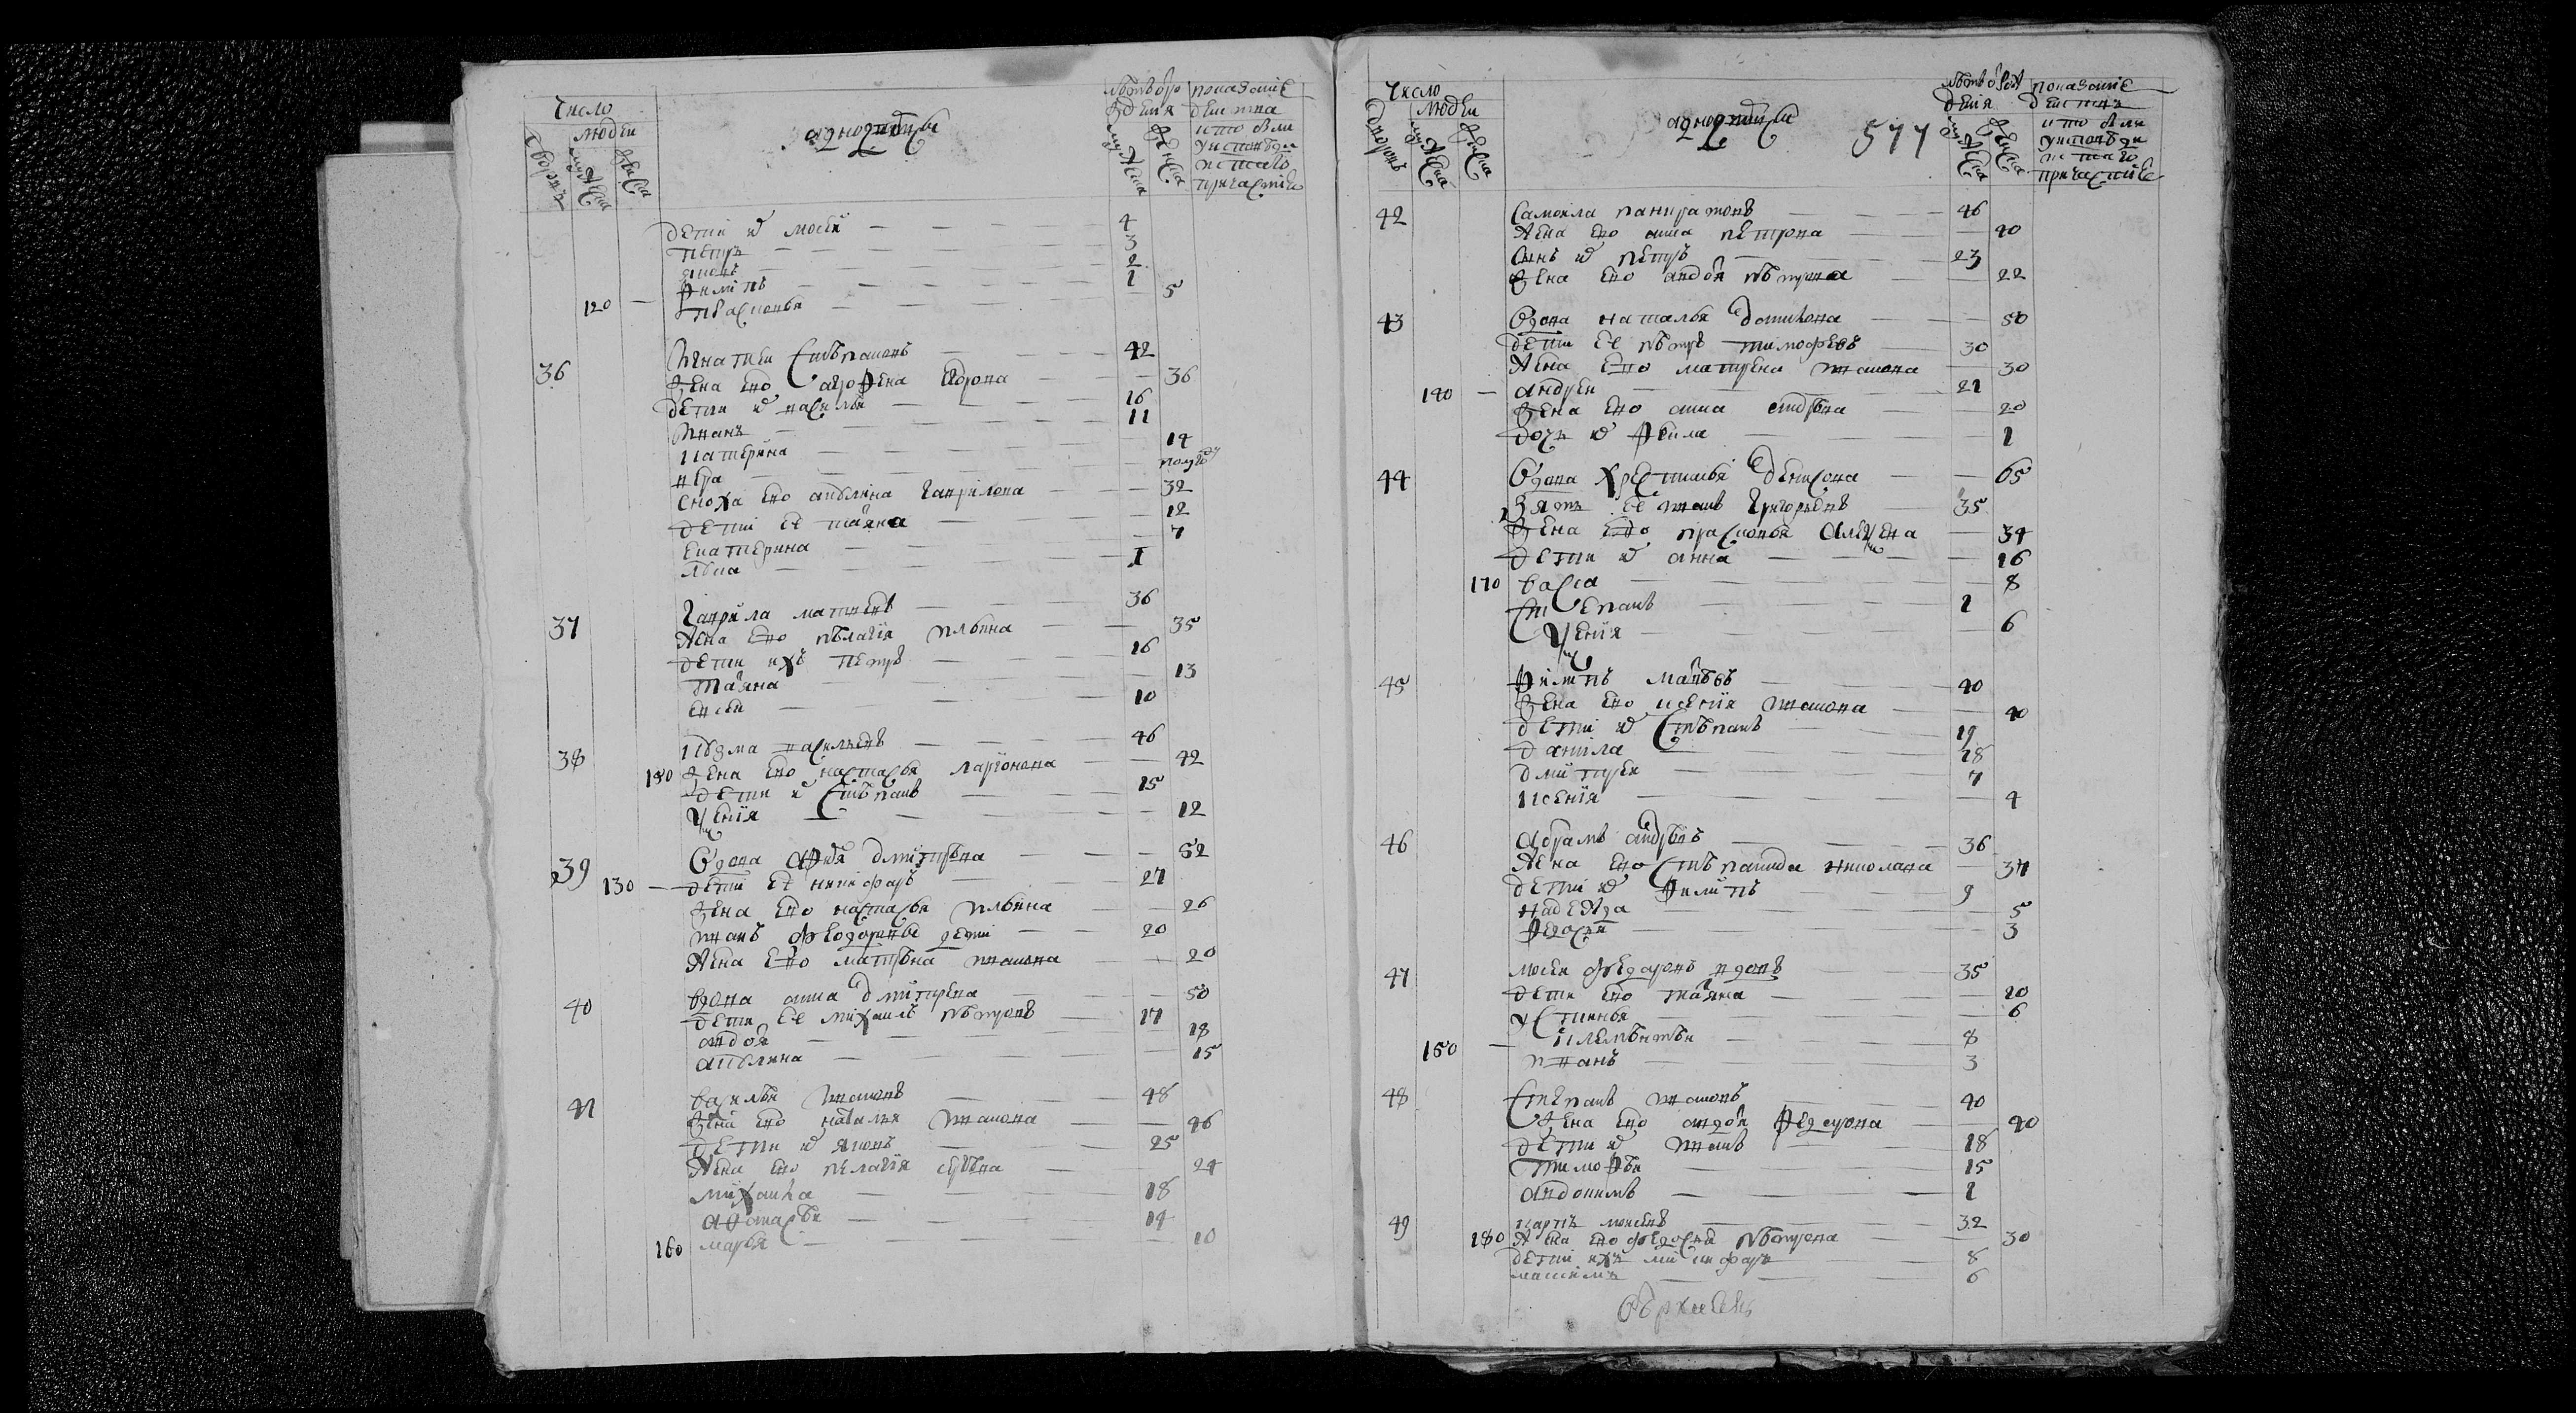 число
людеи
дворовъ
мужеска
женска
аднодворцы
лѣтъ от рождения
мужеска
женска
показание
действа
кто были
у исповеди
и святаго
причастия
дети их мосеи — 4
петръ — 3
яковъ — 2
филипъ — 1
120 — прасковья — 5
36 Игнатеи Степановъ — 42
жена ево агрофена Егорова — 36
дети их василеи — 16
иванъ — 11
катерина — 14
вера — полугоду
сноха ево акулина гаврилова — 32
дети ее таяна — 12
екатерина — 7
— 1
37 гаврила матвеевъ — 36
жена ево пелагия ильина — 35
дети ихъ петръ — 16
таяна — 13
евсеи — 10
38 кузма васильевъ — 46
150 жена ево настасья ларионова — 42
дети их Степанъ — 15
ксения — 12
39 Вдова дмитрева — 52
130 — дети ее никифаръ — 27
жена ево настасья ильина — 26
иванъ федоровы дети — 20
жена ево матрена иванова — 20
40 вдова анна дмитрева — 50
дети ее михаилъ петровъ — 17
авдоя — 18
акулина — 15
41 василеи ивановъ — 48
жена ево наталья иванова — 46
дети их яковъ — 25
жена ево пелагия — 24
михаила — 18
афонасеи — 14
160 марья — 10
число
людеи
дворовъ
мужеска
женска
аднодворцы
577
лѣтъ от рождения
мужеска
женска
показание
действа
кто были
у исповеди
и святаго
причастия
42 Самоила панкратовъ — 46
жена ево анна петрова — 40
сынъ их петръ — 23
жена ево авдоя петрова — 22
43 Вдова наталья — 50
дети ее петръ тимофеевъ — 30
жена ево матрена иванова — 30
140 — андреи — 21
жена ево анна — 20
дочь их фекла — 1
44 Вдова христинья денисова — 65
Зять ее иванъ григорьевъ — 35
жена ево прасковья — 34
дети их анна — 16
170 васса — 8
Степанъ — 1
ксения — 6
45 филипъ матвеевъ — 40
жена ево ксения иванова — 40
дети их Степанъ — 19
данила — 18
дмитреи — 7
ксения — 4
46 абрамъ андреевъ — 36
жена ево степанида николаева — 34
дети их филипъ — 9
надежда — 5
федосья — 3
47 мосеи федаровъ вдовъ — 35
дети ево таяна — 20
устинья — 6
150 — клементеи — 8
иванъ — 3
48 Степанъ ивановъ — 40
жена ево авдоя федорова — 40
дети их иванъ — 18
тимофеи — 15
авдокимъ — 1
49 карпъ моисеевъ — 32
180 жена ево федосья петрова — 30
дети ихъ никифаръ — 8
максимъ — 6